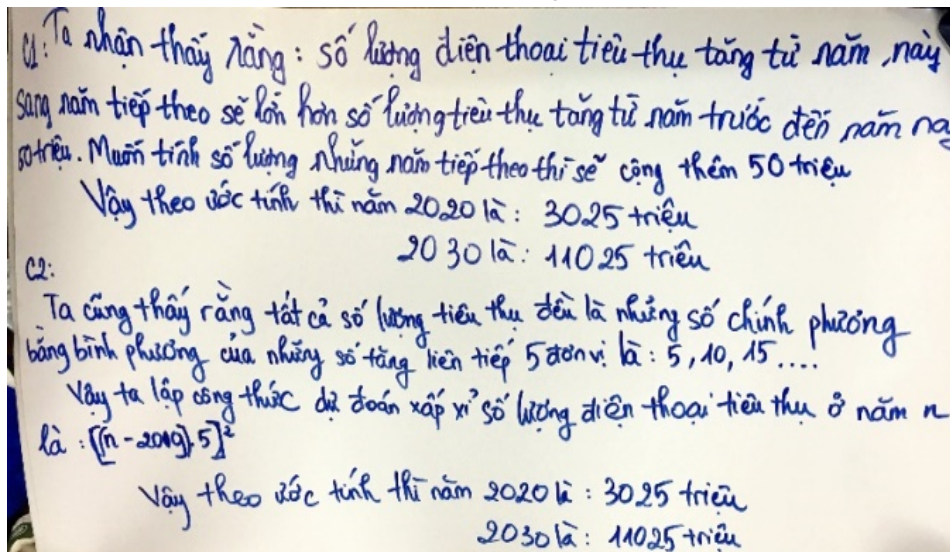 C1: Ta nhận thấy rằng: số lượng điện thoại tiêu thụ tăng từ năm này
sang năm tiếp theo sẽ lớn hơn số lượng tiêu thụ tăng từ năm trước đến năm
50 triệu. Muốn tính số lượng những năm tiếp theo thì sẽ cộng thêm 50 triệu
Vậy theo ước tính thì năm 2020 là: 3025 triệu
2030 là: 11025 triệu
C2:
Ta cũng thấy rằng tất cả số lượng tiêu thụ đều là những số chính phương
bằng bình phương của những số tăng liên tiếp 5 đơn vị là: 5, 10, 15....
Vậy ta lập công thức dự đoán xấp xỉ số lượng điện thoại tiêu thụ ở năm n
là: [(n - 2009).5]²
Vậy theo ước tính thì năm 2020 là: 3025 triệu
2030 là: 11025 triệu